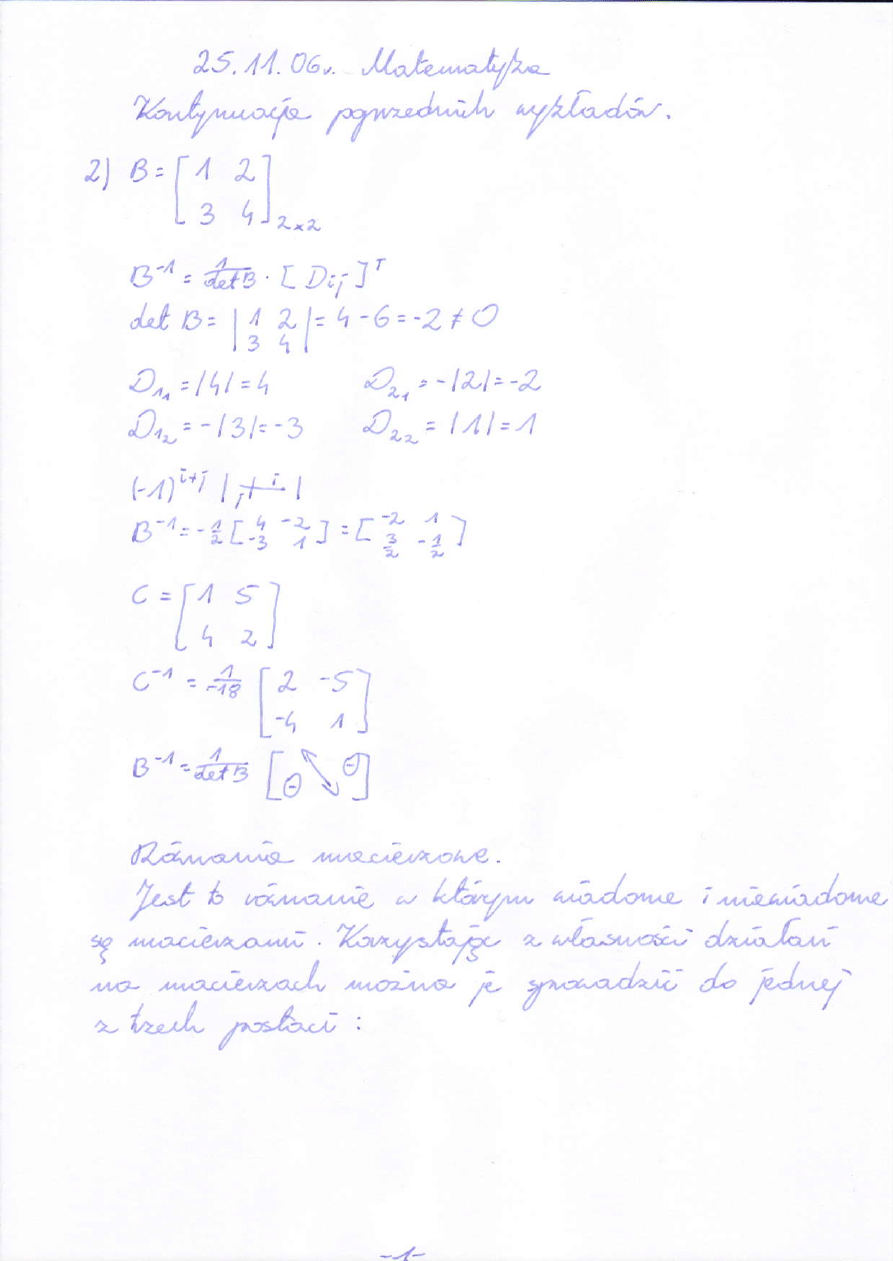 25.11.06r. Matematyka
Kontynuacja poprzednich wykładów.
2) B = [1 2
3 4]2×2
B⁻¹ = 1/detB · [Dij]ᵀ
det B = |1 2
3 4| = 4 - 6 = -2 ≠ 0
D₁₁ = |4| = 4 D₂₁ = -|2| = -2
D₁₂ = -|3| = -3 D₂₂ = |1| = 1
(-1)ⁱ⁺ʲ | j i |
B⁻¹ = -1/2 [4 -2
-3 1] = [-2 1
3/2 -1/2]
C = [1 5
4 2]
C⁻¹ = 1/-18 [2 -5
-4 1]
B⁻¹ = 1/detB [↖↘ ⊖
⊖]
Równanie macierzowe.
Jest to równanie w którym wiadome i niewiadome
są macierzami. Korzystając z własności działań
na macierzach można je sprowadzić do jednej
z trzech postaci :
-1-